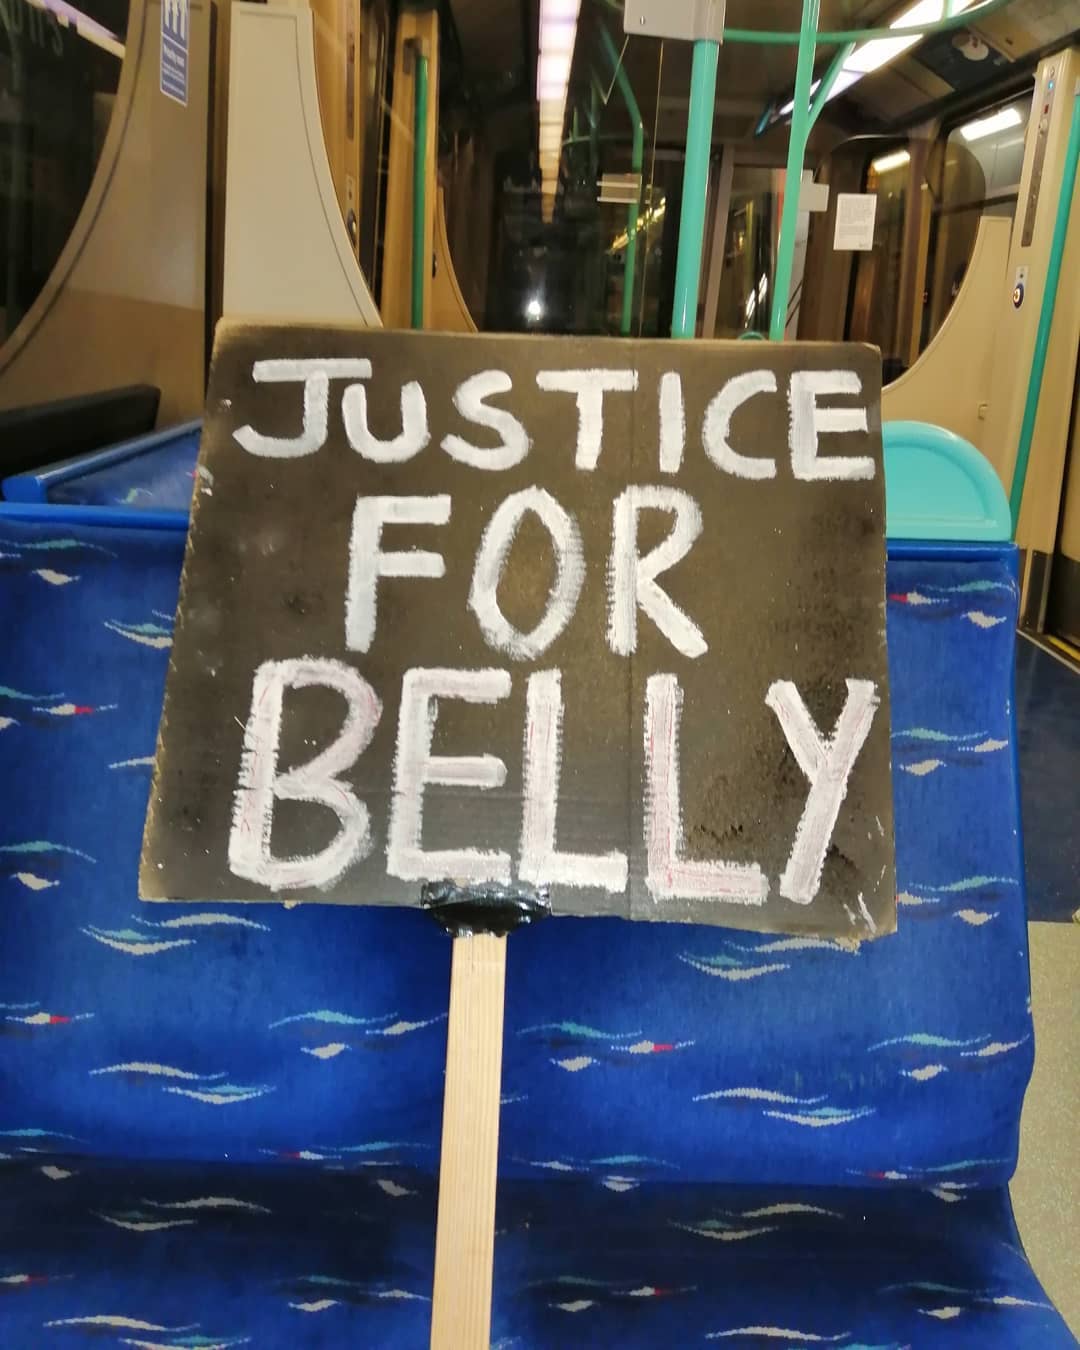 JUSTICE
FOR
BELLY